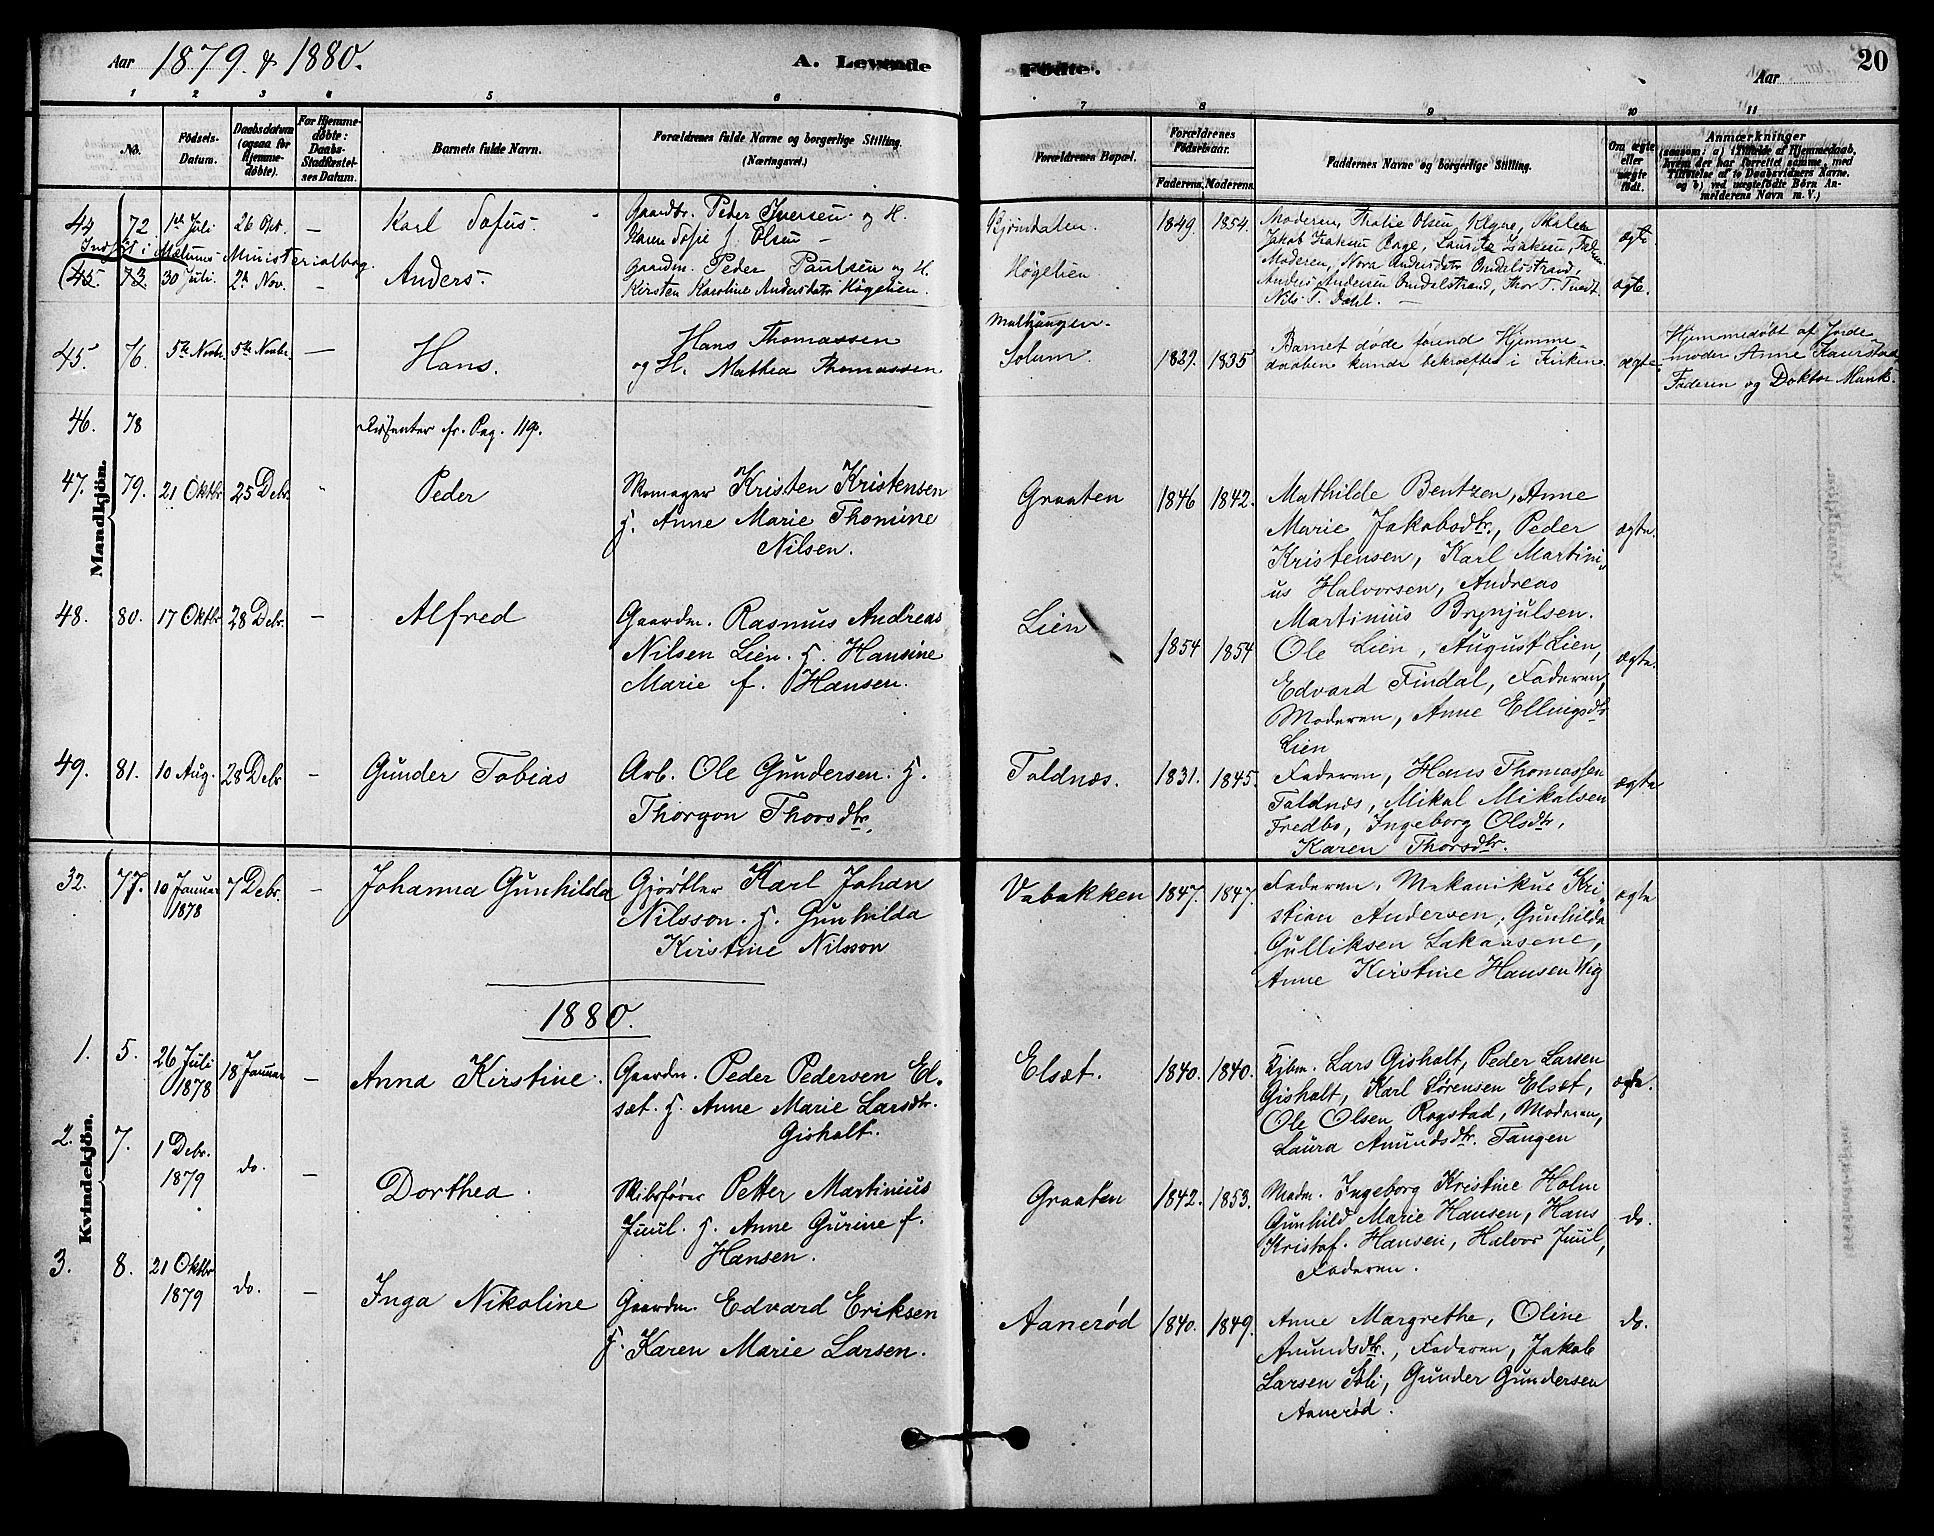 Aar 1879 & 1880. A. Levende Fødte. Aar 20
1 2 3 4 5 6 7 8 9 10 11
No.
Fødsels-
Datum.
Daabsdatum
(ogsaa for
Hjemme-
døbte).
For Hjemme-
døbte:
Daabs-
Stadfæstel-
ses Datum.
Barnets fulde Navn.
Forældrenes fulde Navne og borgerlige Stilling.
(Næringsvei.)
Forældrenes Bopæl.
Forældrenes
Fødselsaar.
Faderens. Moderens.
Faddernes Navne og borgerlige Stilling.
Om ægte
eller
uægte
født.
Anmærkninger
(saasom: a) i Tilfælde af Hjemmedaab,
hvem der har forrettet samme, med
Tilføielse af to Daabsvidners Navne.
og b) ved uægtefødte Børn An-
melderens Navn m. V.)
Mandkjön.
44 72 1st Juli 26 Okt. — Karl Tofus.
Gaardbr. Peder Iversen og H.
Karen Sofie f. Olsen —
Bjørndalen. 1849. 1854.
Moderen, Thalie Olsen
Jakob Isaksen Lauritz Isaksen,
ægte
Indført i Mælums Ministerialbog.
45. 73. 30 Juli. 2n Nov. — Anders.
Gaardm. Peder Paulsen og H.
Kirsten Karoline Andersdatr Høgelien.
Høgelien.
Moderen, Nora Andersdatr Omdalsstrand,
Anders Andersen Omdalstrand, Thor T.
Nils T. Dahl. —
ægte.
45. 76. 5te Novbr. 5te Novbr. — Hans.
Hans Thomassen
og H. Mathea Thomassen
Melhaugen.
Solum. 1829. 1835
Barnet døde førend Hjemme-
daaben kunde bekræftes i Kirken.
ægte.
Hjemmedøbt af Jorde-
moder Anne Kaurstad
Faderen og Doktor Munk.
46. 78 Dissenter fr. Pag. 119.
47. 79. 21 Oktbr 25 Debr. Peder
Skomager Kristen Kristensen
H. Anne Marie Thomine
Nilsen.
Graaten 1846 1842.
Mathilde Bentzen, Anne
Marie Jakobsdtr, Peder
Kristensen, Karl Martini-
us Halvorsen, Andreas
Martinius Brynjulsen.
ægte.
48. 80. 17 Oktbr 28 Debr. — Alfred
Gaardm. Rasmus Andreas
Nilsen Lien. H. Hansine
Marie f. Hansen.
Lien 1854 1854
Ole Lien, August Lien,
Edvard Findal, Faderen,
Moderen, Anne Ellingsdtr
Lien
ægte.
49. 81. 10 Aug. 28 Debr — Gunder Tobias
Arb. Ole Gundersen. H.
Thorgon Thorsdtr.
Toldnæs. 1831. 1845.
Faderen, Hans Thomassen
Toldnæs, Mikal Mikalsen
Fredbo, Ingeborg Olsdtr,
Karen Thorsdtr.
ægte
Kvindekjön.
32. 77. 10 Januar
1878 7 Debr. — Johanna Gunhilda
Gjørtler Karl Johan
Nilsson. H. Gunhilda
Kirstine Nilsson
Vabakken 1847. 1847.
Faderen. Mekanikus Kri-
stian Andersen, Gunhilda
Gulliksen
Anne Kirstine Hansen Wig
ægte
1880.
1. 5. 26 Juli
1878 18 Januar — Anna Kirstine.
Gaardm. Peder Pedersen El-
sæt. H. Anne Marie Larsdtr.
Gisholt.
Elsæt. 1840. 1840.
Kjbm. Lars Gisholt, Peder Larsen
Gisholt, Karl Sørensen Elsæt,
Ole Olsen Rogstad, Moderen,
Laura Amundsdtr. Tangen
ægte.
2. 7. 1 Debr.
1879 do. — Dorthea.
Skibsfører Petter Martinius
Juul. H. Anne Gurine f.
Hansen.
Graaten 1842. 1853.
Madm. Ingeborg Kristine Holm
Gunhild Marie Hansen, Hans
Kristof. Hansen, Halvor Juul,
Faderen.
do.
3. 8. 21 Oktbr
1879 do. — Inga Nikoline
Gaardm. Edvard Eriksen
H. Karen Marie Larsen.
Aanerød 1840. 1849.
Anne Margrethe, Oline
Amundsdtr., Faderen, Jakob
Larsen Gunder Gundersen
Aanerød.
do.